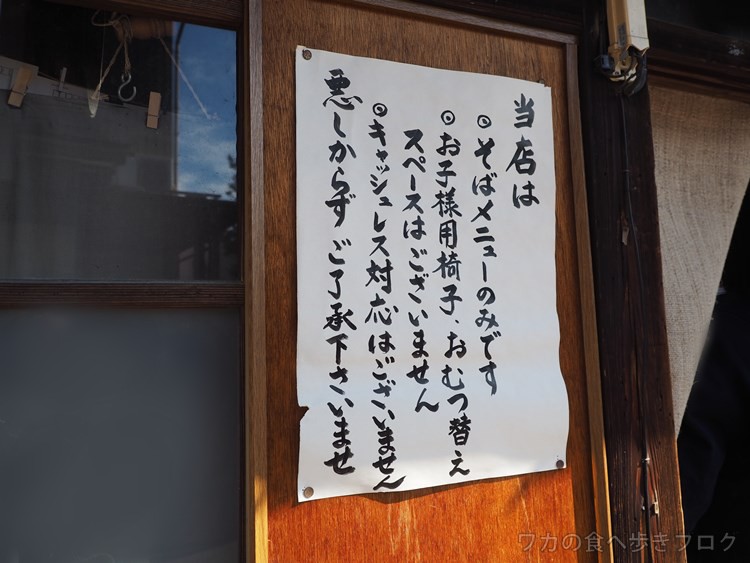 当店は
◎そばメニューのみです
◎お子様用椅子、おむつ替え
スペースはございません
◎キャッシュレス対応はございません
悪しからずご了承下さいませ
ワカの食べ歩きブログ